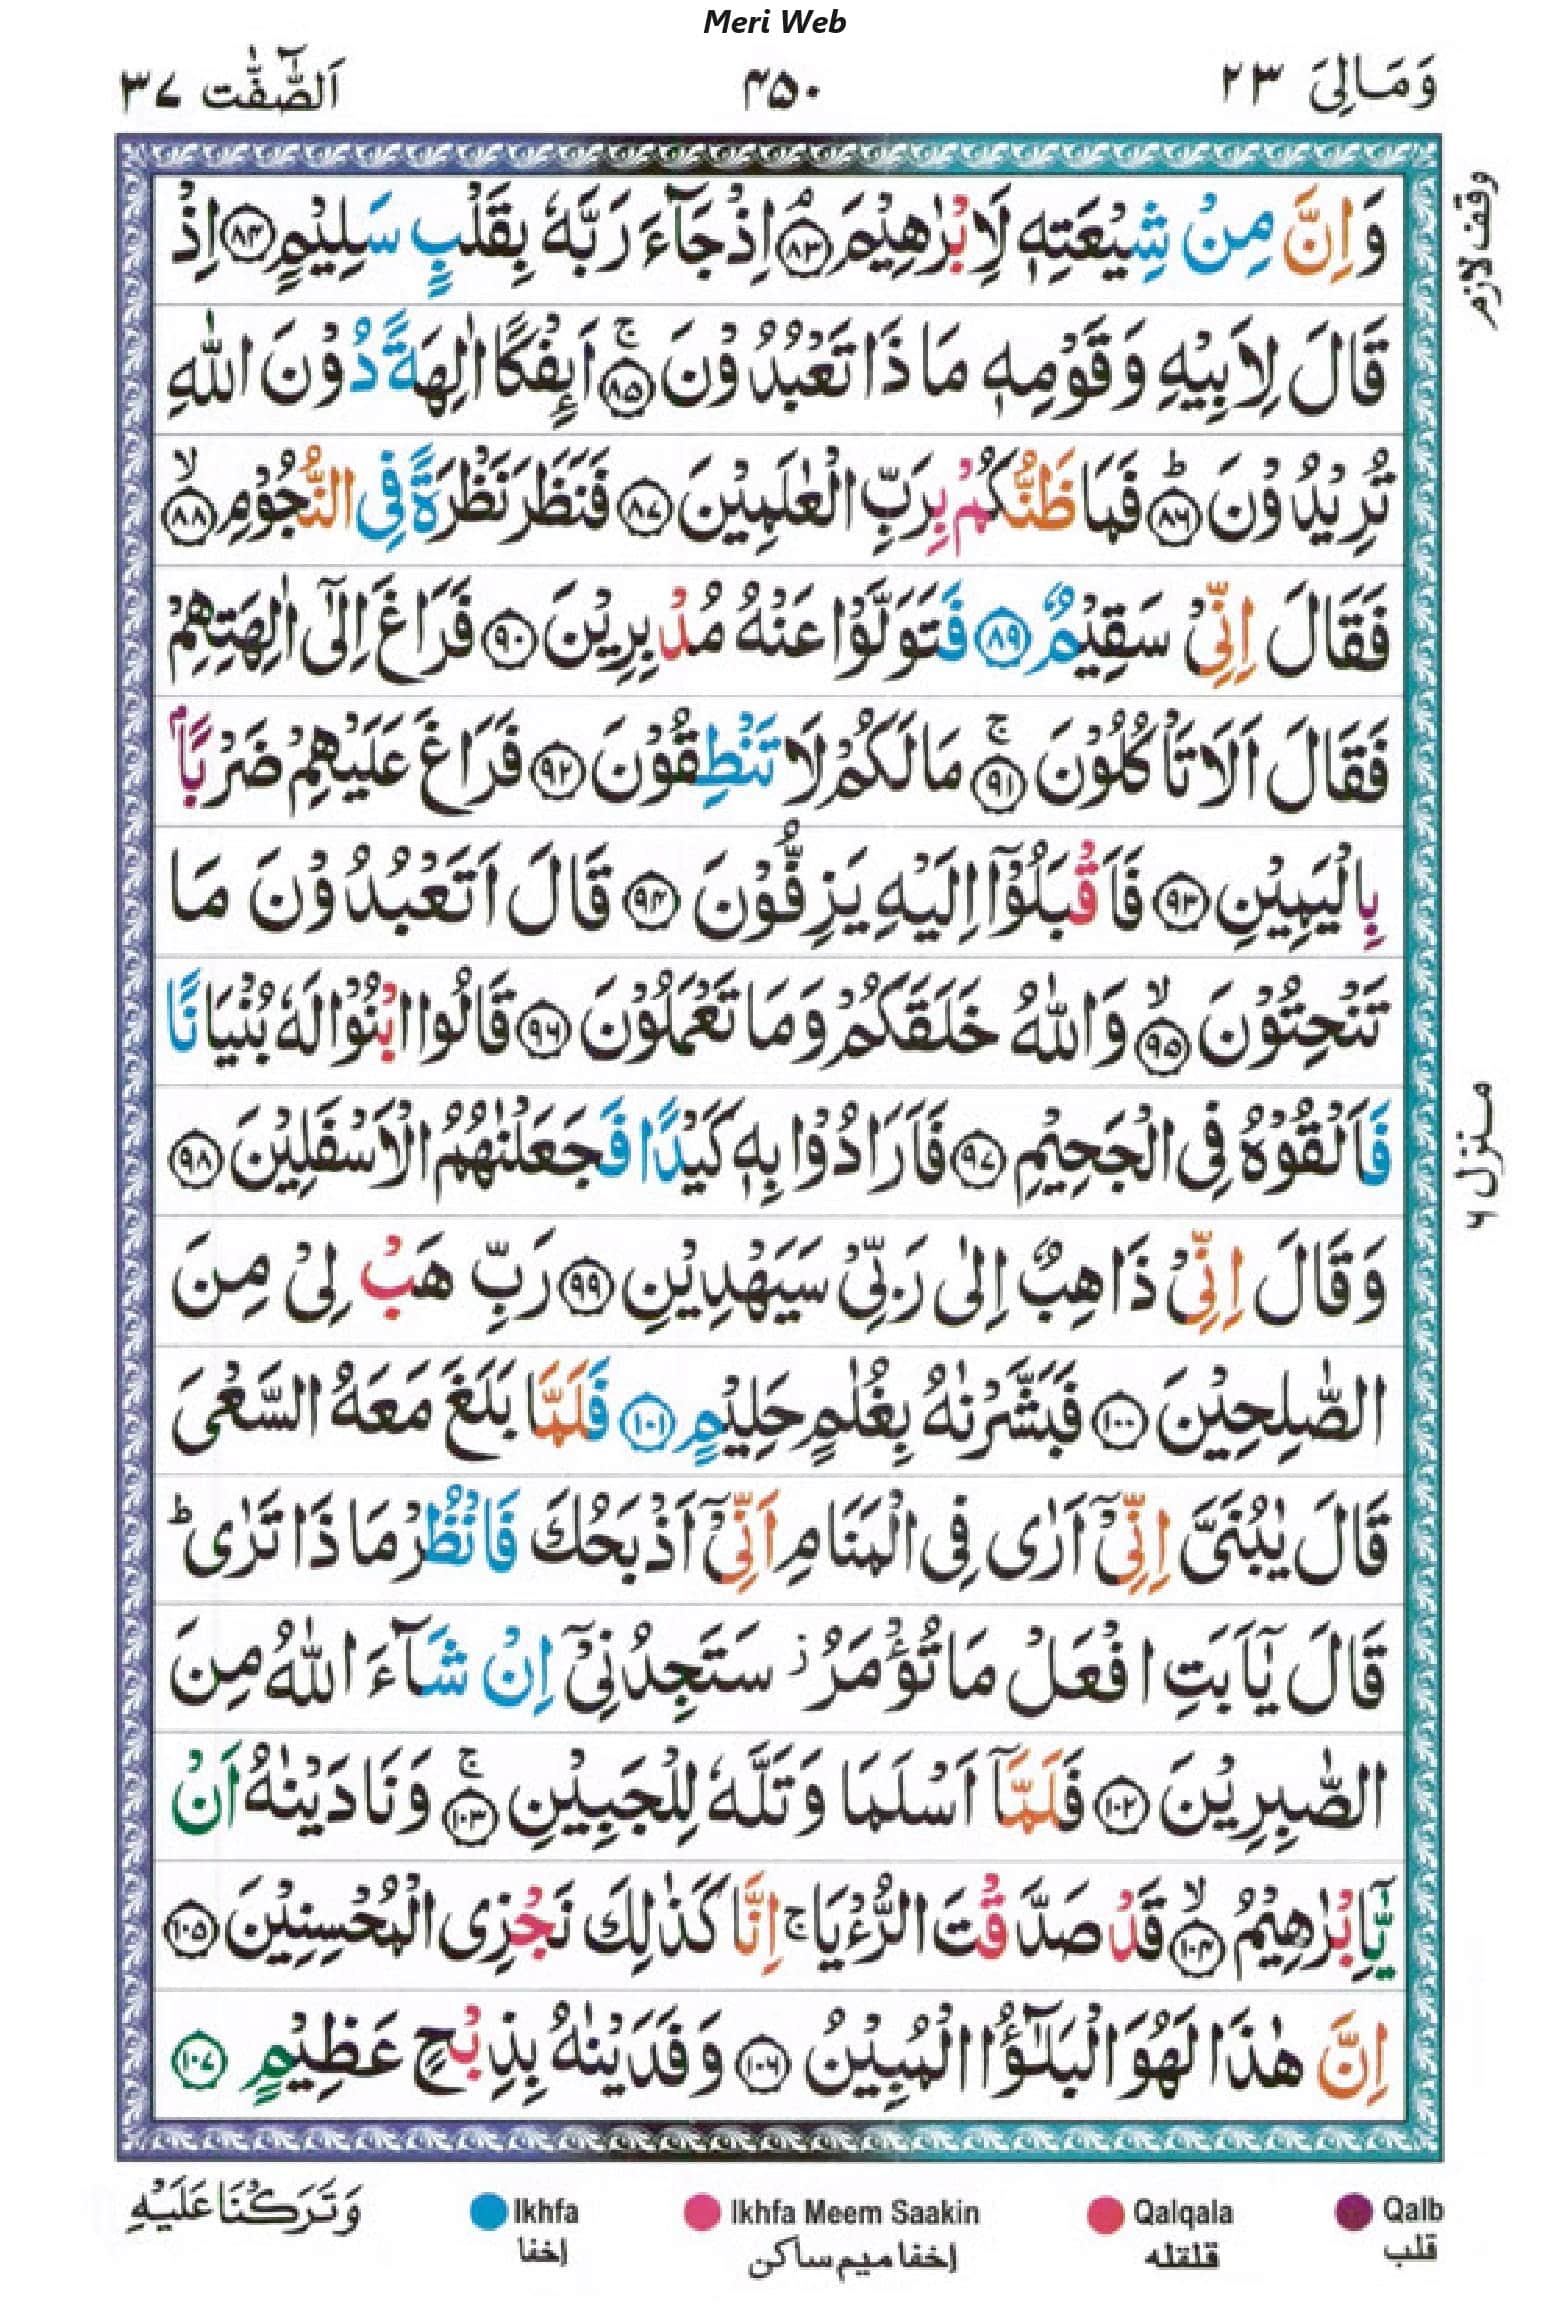 Meri Web
وَمَالِیَ ۲۳
۴۵۰
اَلصّٰٓفّٰت ۳۷
وقف لازم
وَاِنَّ مِنْ شِيْعَتِهٖ لَاِبْرٰهِيْمَ ۘ ﴿۸۳﴾ اِذْ جَآءَ رَبَّهٗ بِقَلْبٍ سَلِيْمٍ ﴿۸۴﴾ اِذْ
قَالَ لِاَبِيْهِ وَقَوْمِهٖ مَاذَا تَعْبُدُوْنَ ۚ ﴿۸۵﴾ اَئِفْكًا اٰلِهَةً دُوْنَ اللّٰهِ
تُرِيْدُوْنَ ؕ ﴿۸۶﴾ فَمَا ظَنُّكُمْ بِرَبِّ الْعٰلَمِيْنَ ﴿۸۷﴾ فَنَظَرَ نَظْرَةً فِى النُّجُوْمِ ۙ ﴿۸۸﴾
فَقَالَ اِنِّىْ سَقِيْمٌ ﴿۸۹﴾ فَتَوَلَّوْا عَنْهُ مُدْبِرِيْنَ ﴿۹۰﴾ فَرَاغَ اِلٰٓى اٰلِهَتِهِمْ
فَقَالَ اَلَا تَاْكُلُوْنَ ۚ ﴿۹۱﴾ مَا لَكُمْ لَا تَنْطِقُوْنَ ﴿۹۲﴾ فَرَاغَ عَلَيْهِمْ ضَرْبًاۢ
بِالْيَمِيْنِ ﴿۹۳﴾ فَاَقْبَلُوْٓا اِلَيْهِ يَزِفُّوْنَ ﴿۹۴﴾ قَالَ اَتَعْبُدُوْنَ مَا
تَنْحِتُوْنَ ۙ ﴿۹۵﴾ وَاللّٰهُ خَلَقَكُمْ وَمَا تَعْمَلُوْنَ ﴿۹۶﴾ قَالُوا ابْنُوْا لَهٗ بُنْيَانًا
فَاَلْقُوْهُ فِى الْجَحِيْمِ ﴿۹۷﴾ فَاَرَادُوْا بِهٖ كَيْدًا فَجَعَلْنٰهُمُ الْاَسْفَلِيْنَ ﴿۹۸﴾
وَقَالَ اِنِّىْ ذَاهِبٌ اِلٰى رَبِّىْ سَيَهْدِيْنِ ﴿۹۹﴾ رَبِّ هَبْ لِىْ مِنَ
الصّٰلِحِيْنَ ﴿۱۰۰﴾ فَبَشَّرْنٰهُ بِغُلٰمٍ حَلِيْمٍ ﴿۱۰۱﴾ فَلَمَّا بَلَغَ مَعَهُ السَّعْىَ
قَالَ يٰبُنَىَّ اِنِّىْٓ اَرٰى فِى الْمَنَامِ اَنِّىْٓ اَذْبَحُكَ فَانْظُرْ مَاذَا تَرٰى ؕ
قَالَ يٰٓاَبَتِ افْعَلْ مَا تُؤْمَرُ ز سَتَجِدُنِىْٓ اِنْ شَآءَ اللّٰهُ مِنَ
الصّٰبِرِيْنَ ﴿۱۰۲﴾ فَلَمَّآ اَسْلَمَا وَتَلَّهٗ لِلْجَبِيْنِ ۚ ﴿۱۰۳﴾ وَنَادَيْنٰهُ اَنْ
يّٰٓاِبْرٰهِيْمُ ۙ ﴿۱۰۴﴾ قَدْ صَدَّقْتَ الرُّءْيَا ۚ اِنَّا كَذٰلِكَ نَجْزِى الْمُحْسِنِيْنَ ﴿۱۰۵﴾
اِنَّ هٰذَا لَهُوَ الْبَلٰٓـؤُا الْمُبِيْنُ ﴿۱۰۶﴾ وَفَدَيْنٰهُ بِذِبْحٍ عَظِيْمٍ ﴿۱۰۷﴾
منزل ۶
وَتَرَكْنَا عَلَيْهِ
Ikhfa
اخفا
Ikhfa Meem Saakin
اخفا میم ساکن
Qalqala
قلقله
Qalb
قلب